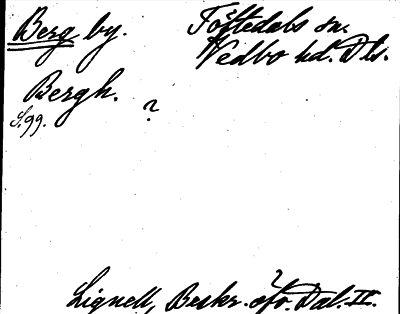 Berg by. Töftedals sn.
Vedbo hd. Dls.
Bergh. ?
S. 99.
?
Lignell, Beskr. öfv. Dal. II.